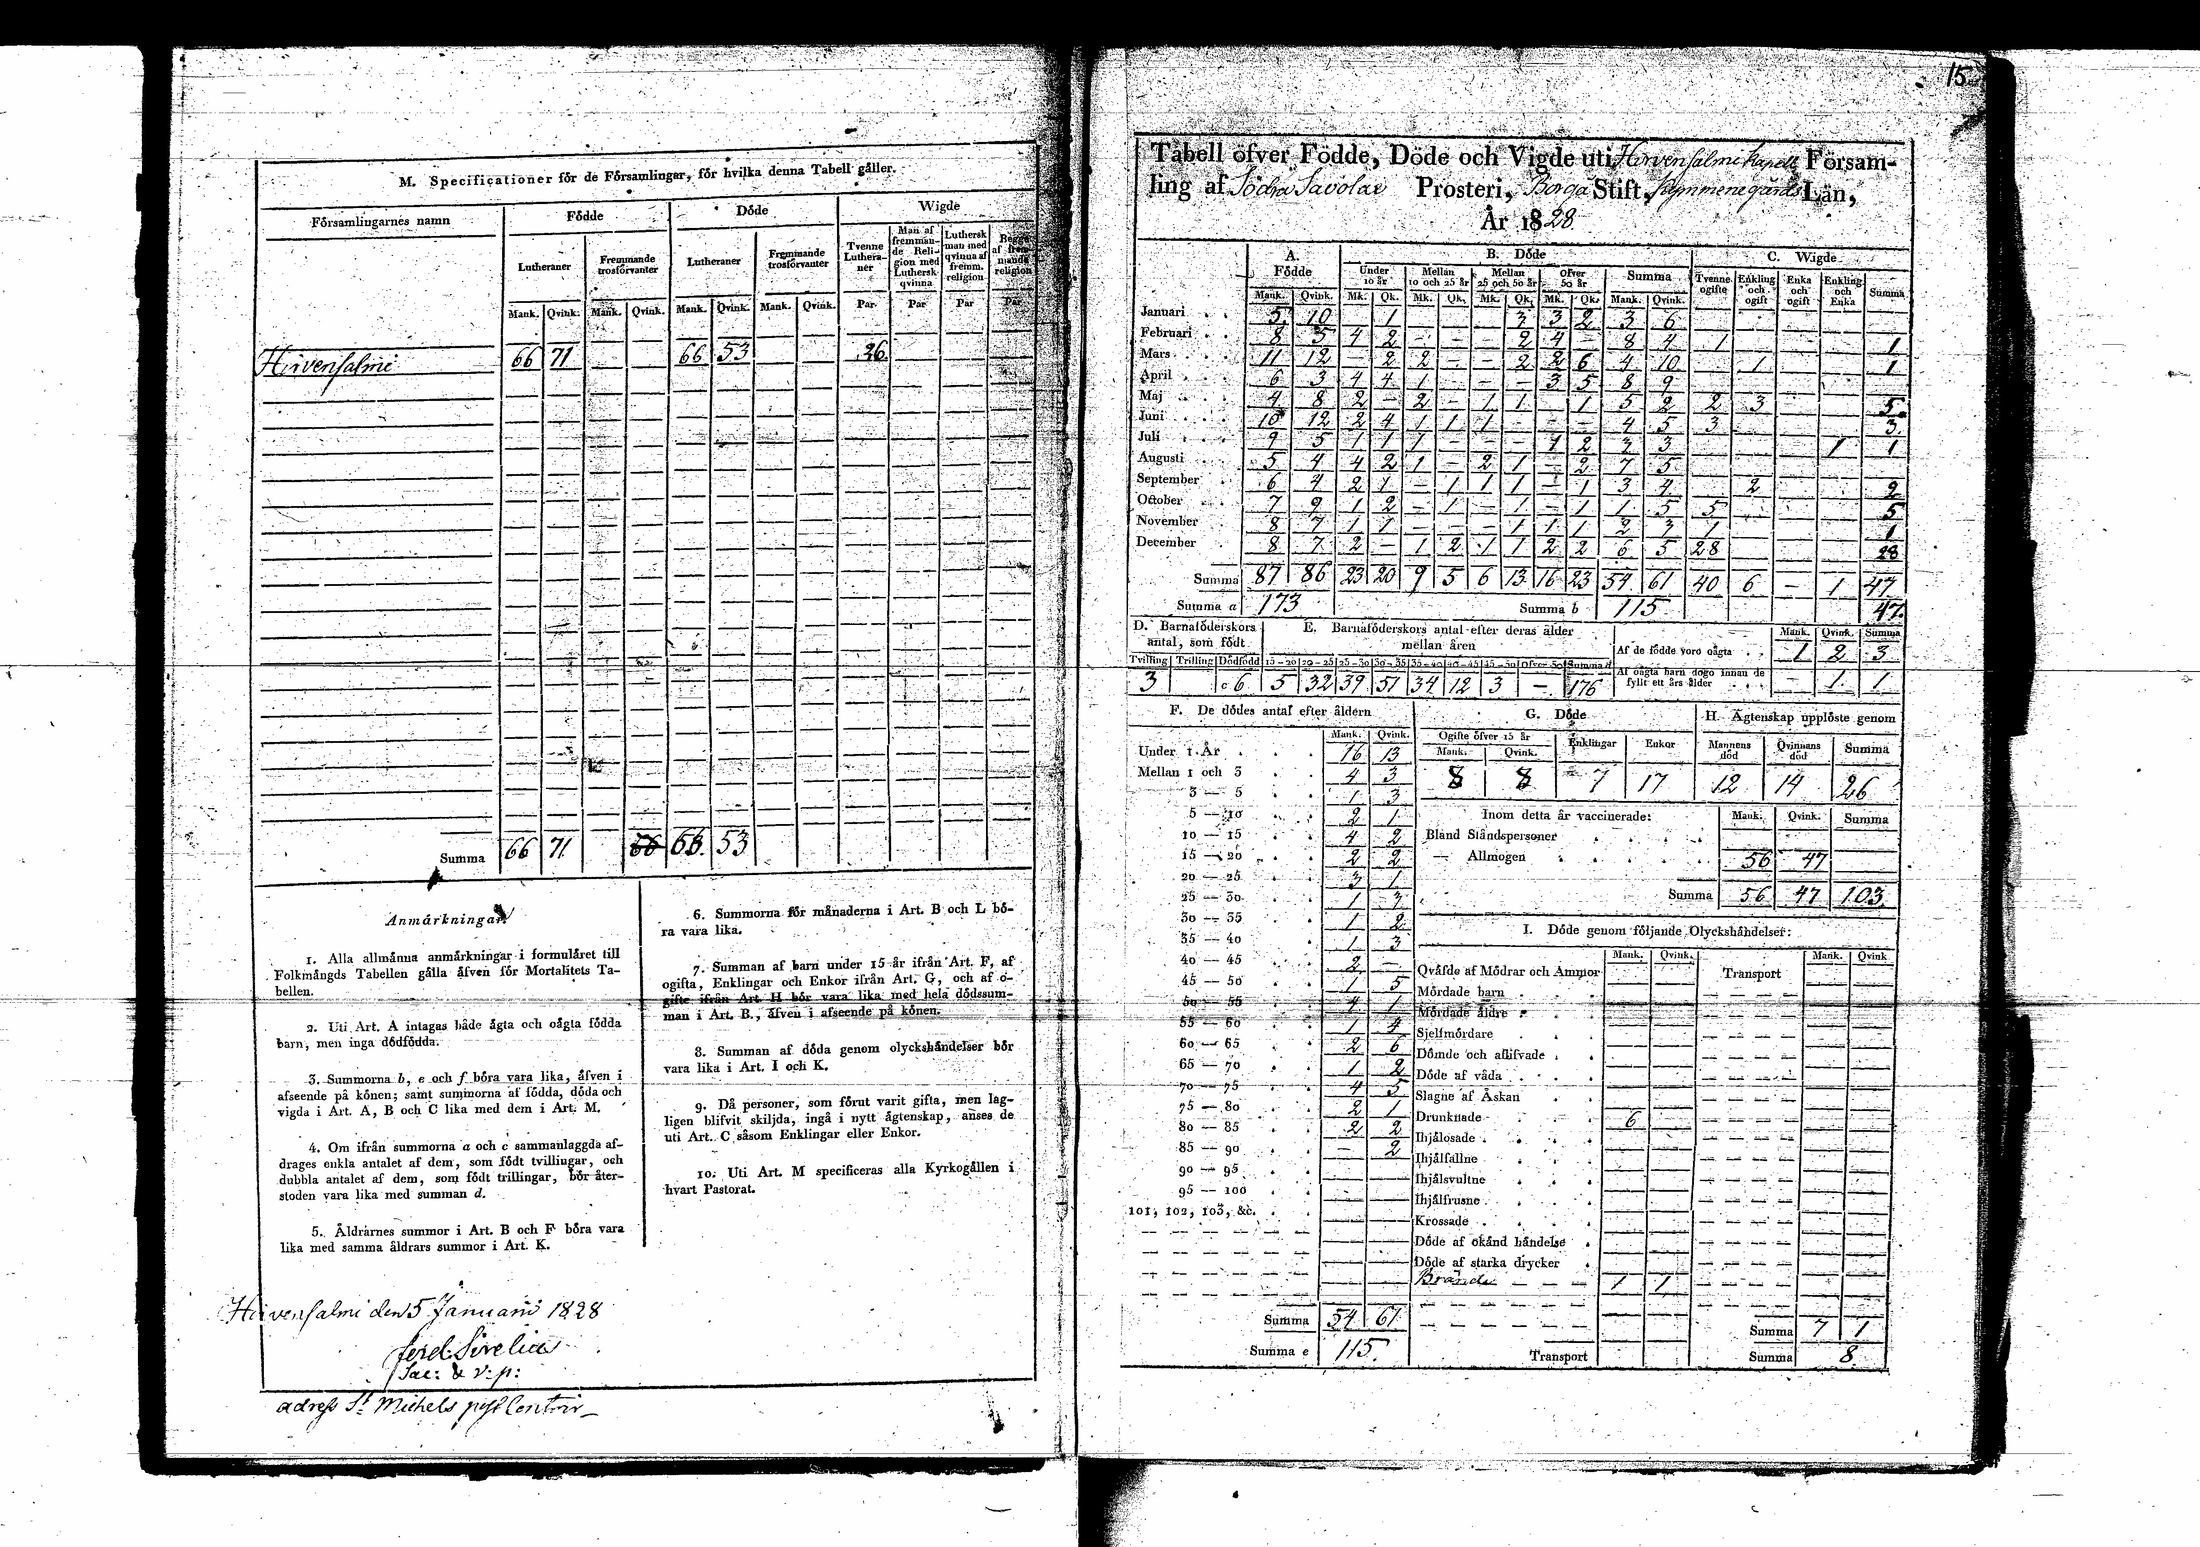 M. Specificationer för de Församlingar, för hvilka denna Tabell gäller.
Församlingarnes namn | Födde | Döde | Wigde
Lutheraner | Fremmande trosförvanter | Lutheraner | Fremmande trosförvanter | Tvenne Lutheraner | Man af fremmande Religion med Luthersk qvinna | Luthersk man med qvinna af fremm. religion | Begge af fremmande religion
Mank. | Qvink. | Mank. | Qvink. | Mank. | Qvink. | Mank. | Qvink. | Par | Par | Par | Par
Hirvensalmi 66 71 66 53 26
Summa 66 71 66 53
Anmärkningar
1. Alla allmänna anmärkningar i formuläret till
Folkmängds Tabellen gälla äfven för Mortalitets Ta-
bellen.
2. Uti Art. A intagas både ägta och oägta födda
barn, men inga dödfödda.
3. Summorna b, e och f böra vara lika, äfven i
afseende på könen; samt summorna af födda, döda och
vigda i Art. A, B och C lika med dem i Art. M.
4. Om ifrån summorna a och c sammanlaggda af-
drages enkla antalet af dem, som födt tvillingar, och
dubbla antalet af dem, som födt trillingar, bör åter-
stoden vara lika med summan d.
5. Åldrarnes summor i Art. B och F böra vara
lika med samma åldrars summor i Art. K.
6. Summorna för månaderna i Art. B och L bö-
ra vara lika.
7. Summan af barn under 15 år ifrån Art. F, af
ogifta, Enklingar och Enkor ifrån Art. G, och af o-
gifte ifrån Art. H bör vara lika med hela dödssum-
man i Art. B., äfven i afseende på könen.
8. Summan af döda genom olyckshändelser bör
vara lika i Art. I och K.
9. Då personer, som förut varit gifta, men lag-
ligen blifvit skiljda, ingå i nytt ägtenskap, anses de
uti Art. C såsom Enklingar eller Enkor.
10. Uti Art. M specificeras alla Kyrkogällen i
hvart Pastorat.
Hirvensalmi den 5 Januarii 1828
Sac: & v: p:
adress St Michels post Contoir
15
Tabell öfver Födde, Döde och Vigde uti Hirvensalmi kapell Försam-
ling af Södra Savolax Prosteri, Borgå Stift, Kymmenegårds Län,
År 1828
A. Födde | B. Döde | C. Wigde
Under 10 år | Mellan 10 och 25 år | Mellan 25 och 50 år | Öfver 50 år | Summa | Tvenne ogifte | Enkling och ogift | Enka och ogift | Enkling och Enka | Summa
Mank. | Qvink. | Mk. | Qk. | Mk. | Qk. | Mk. | Qk. | Mk. | Qk. | Mank. | Qvink.
Januari 5 10 1 3 3 2 3 6
Februari 8 5 4 2 - - - 2 4 - 8 4 1 1
Mars 11 12 - 2 2 - - 2 2 6 4 10 1 1
April 6 3 4 4 1 - - - 3 5 8 9
Maj 4 8 2 - 2 - 1 1 - 1 5 2 2 3 5
Juni 10 12 2 4 1 1 1 - - - 4 5 3 3
Juli 9 5 1 1 1 - - - 1 2 3 3 1 1
Augusti 5 4 4 2 1 - 2 1 - 2 7 5
September 6 4 2 1 - 1 1 1 - 1 3 4 2 2
October 7 9 1 2 - 1 - 1 - 1 1 5 5 5
November 8 7 1 1 - - - 1 1 1 2 3 1 1
December 8 7 2 - 1 2 1 1 2 2 6 5 28 28
Summa 87 86 23 20 9 5 6 13 16 23 54 61 40 6 - 1 47
Summa a 173 Summa b 115 47.
D. Barnaföderskors antal, som födt | E. Barnaföderskors antal efter deras ålder mellan åren | Mank. | Qvink. | Summa
Tvilling | Trilling | Dödfödd | 15-20 | 20-25 | 25-30 | 30-35 | 35-40 | 40-45 | 45-50 | Öfver 50 | Summa d
3 c 6 5 32 39 51 34 12 3 - 176
Af de födde voro oägta 1 2 3
Af oägta barn dogo innan de fyllt ett års ålder - 1 1
F. De dödes antal efter åldern
Mank. Qvink.
Under 1 År 16 13
Mellan 1 och 3 4 3
3 — 5 1 3
5 — 10 2 1
10 — 15 4 2
15 — 20 2 2
20 — 25 3 1
25 — 30 1 3
30 — 35 1 2
35 — 40 1 3
40 — 45 2 -
45 — 50 1 5
50 — 55 4 1
55 — 60 1 4
60 — 65 2 6
65 — 70 1 2
70 — 75 4 5
75 — 80 2 1
80 — 85 2 2
85 — 90 - 2
90 — 95
95 — 100
101, 102, 103, &c.
Summa 54 61
Summa e 115.
G. Döde
Ogifte öfver 15 år | Enklingar | Enkor
Mank. | Qvink.
8 8 7 17
H. Ägtenskap upplöste genom
Mannens död | Qvinnans död | Summa
12 14 26
Inom detta år vaccinerade: Mank. Qvink. Summa
Bland Ståndspersoner
— Allmogen 56 47
Summa 56 47 103
I. Döde genom följande Olyckshändelser:
Mank. Qvink. Transport Mank. Qvink
Qväfde af Mödrar och Ammor
Mördade barn
Mördade äldre
Sjelfmördare
Dömde och aflifvade
Döde af våda
Slagne af Åskan
Drunknade 6
Ihjälosade
Ihjälfallne
Ihjälsvultne
Ihjälfrusne
Krossade
Döde af okänd händelse
Döde af starka drycker
Brände 1 1
Summa 7 1
Transport Summa 8.